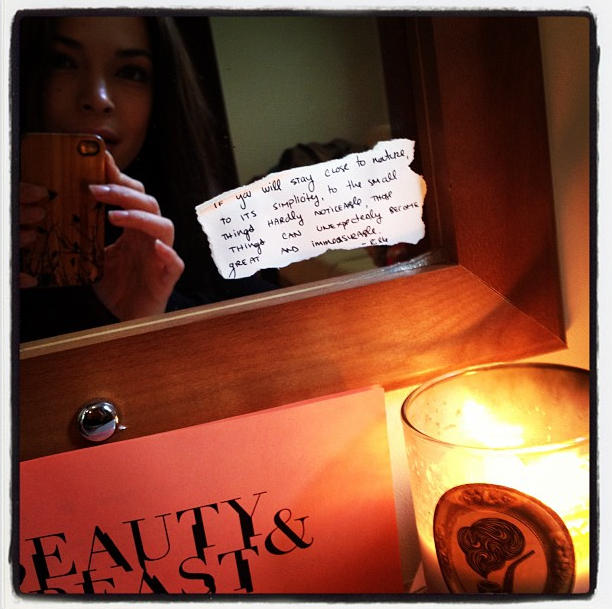 IF you will stay close to nature,
to its simplicity, to the small
things hardly noticeable, those
things can unexpectedly become
great and immeasurable.
BEAUTY &
BEAST